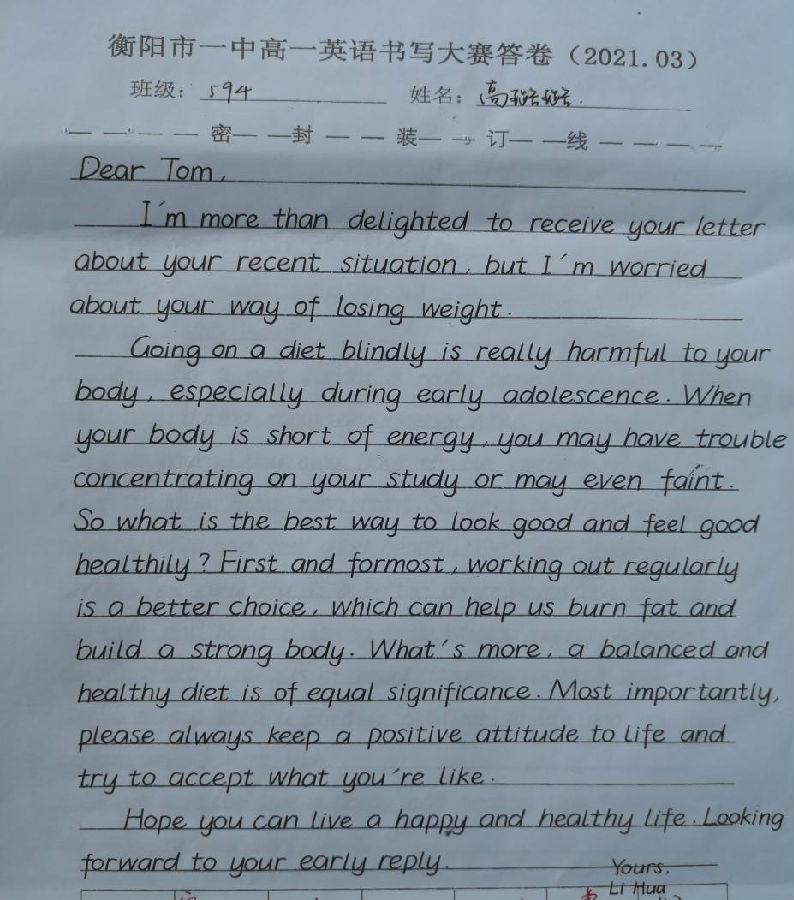 衡阳市一中高一英语书写大赛答卷（2021.03）
班级：594 姓名：高
密 封 装 订 线
Dear Tom,
I'm more than delighted to receive your letter
about your recent situation, but I'm worried
about your way of losing weight.
Going on a diet blindly is really harmful to your
body, especially during early adolescence. When
your body is short of energy, you may have trouble
concentrating on your study or may even faint.
So what is the best way to look good and feel good
healthily? First and formost, working out regularly
is a better choice, which can help us burn fat and
build a strong body. What's more, a balanced and
healthy diet is of equal significance. Most importantly,
please always keep a positive attitude to life and
try to accept what you're like.
Hope you can live a happy and healthy life. Looking
forward to your early reply.
Yours,
Li Hua